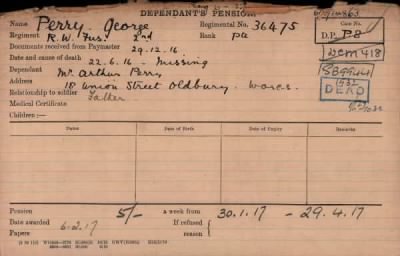 DEPENDANT'S PENSION.
Name Perry, George Regimental No. 36475 Case No.
Regiment R.W. Fus. 2nd Rank pte D.P. P8
Documents received from Paymaster 29.12.16
Date and cause of death 22.6.16 - Missing DCM 418
Dependant Mr Arthur Perry
Address 18 Union Street Oldbury. Worcs.
Relationship to soldier Father DEAD
Medical Certificate
Children :—
Name Date of Birth Date of Expiry Remarks
Pension 5/- a week from 30.1.17 - 29.4.17
Date awarded 6.2.17 If refused
Papers reason